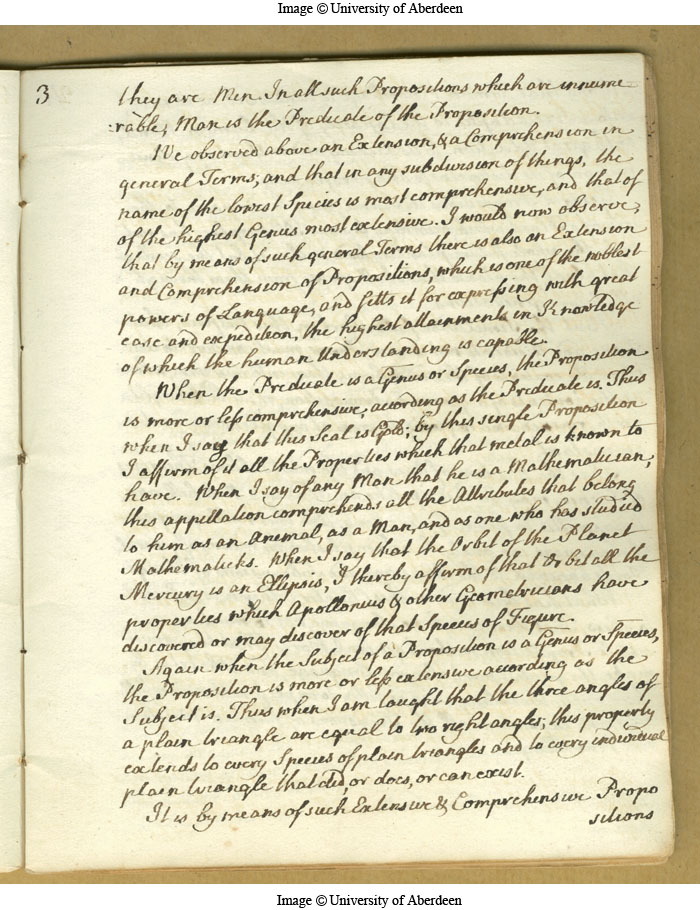 Image © University of Aberdeen
3
they are Men. In all such Propositions which are innume
:rable, Man is the Predicate of the Proposition.
We observed above an Extension, & a Comprehension in
general Terms; and that in any subdivision of things, the
name of the lowest Species is most comprehensive, and that of
of the highest Genus most extensive. I would now observe,
that by means of such general Terms there is also an Extension
and Comprehension of Propositions, which is one of the noblest
powers of Language, and fitts it for expressing with great
ease and expedition, the highest attainments in Knowledge
of which the human Understanding is capable.
When the Predicate is a Genus or Species, the Proposition
is more or less comprehensive, according as the Predicate is. Thus
when I say that this Seal is Gold; by this single Proposition
I affirm of it all the Properties which that metal is known to
have. When I say of any Man that he is a Mathematician,
this appellation comprehends all the Attributes that belong
to him as an Animal, as a Man, and as one who has studied
Mathematicks. When I say that the Orbit of the Planet
Mercury is an Ellipsis, I thereby affirm of that Orbit all the
properties which Apollonius & other Geometricians have
discovered or may discover of that Species of Figure.
Again when the Subject of a Proposition is a Genus or Species,
the Proposition is more or less extensive according as the
Subject is. Thus when I am taught that the three angles of
a plain triangle are equal to two right angles; this property
extends to every Species of plain triangles and to every individual
plain triangle that did, or does, or can exist.
It is by means of such Extensive & Comprehensive Propo
sitions
Image © University of Aberdeen